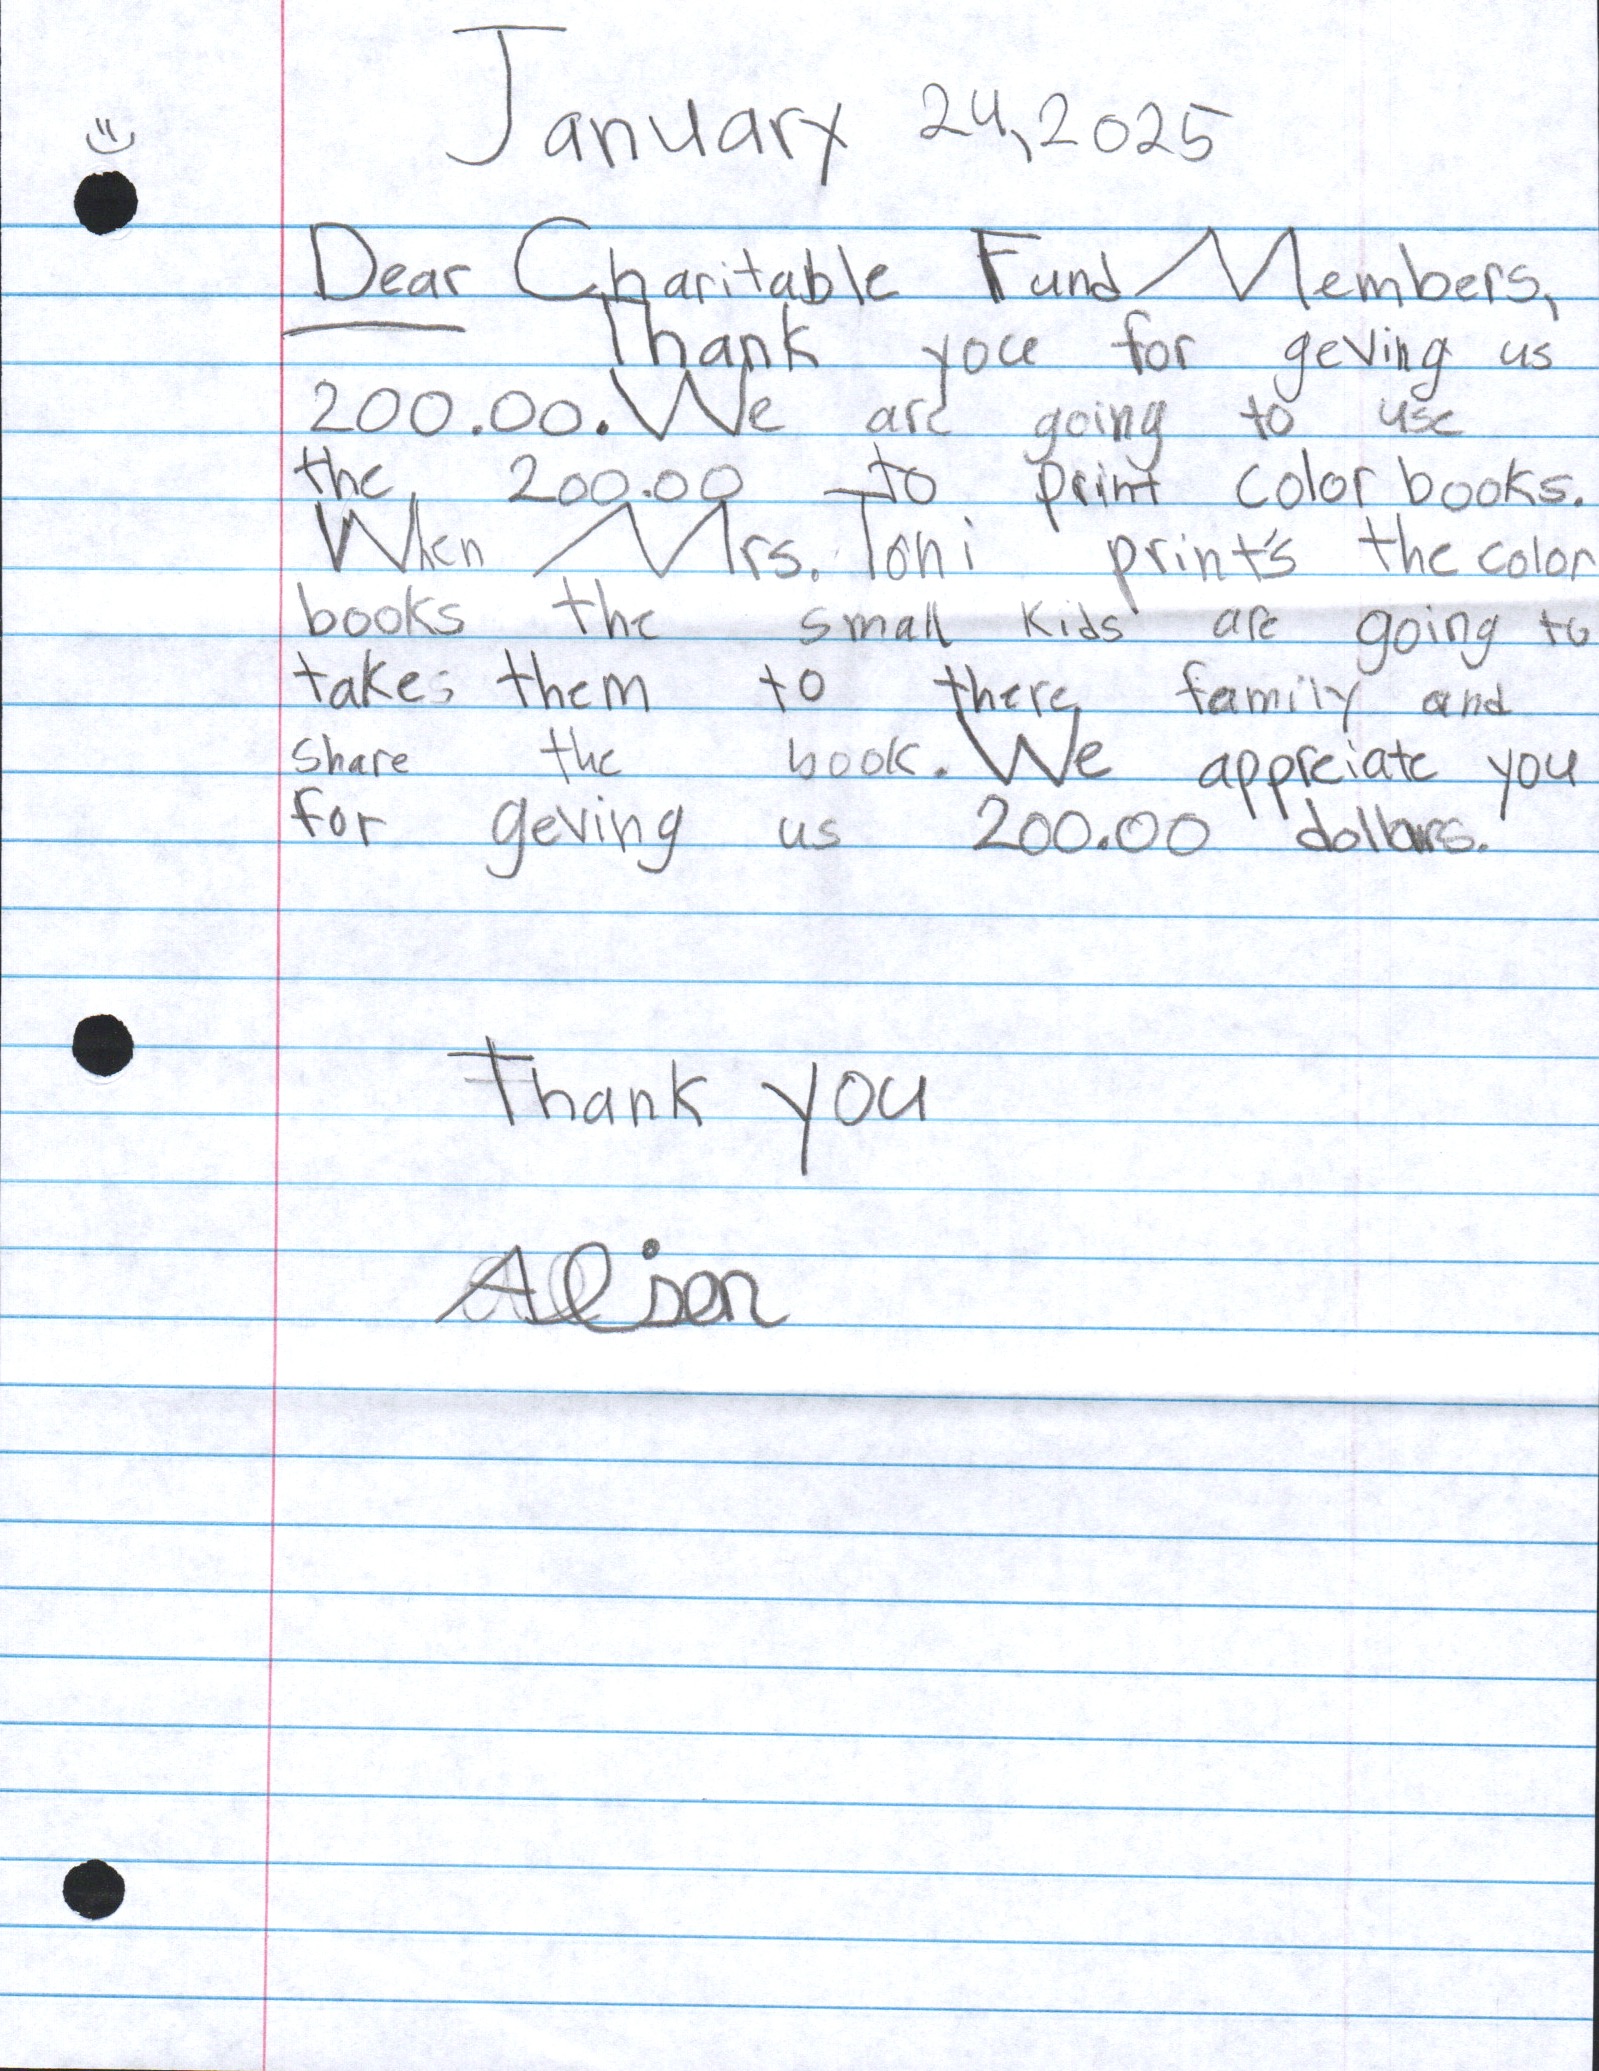 January 24, 2025
Dear Charitable Fund Members,
Thank you for geving us
200.00. We are going to use
the 200.00 to print color books.
When Mrs. Toni print's the color
books the small kids are going to
takes them to there family and
share the book. We appreiate you
for geving us 200.00 dollars.
Thank you
Alison